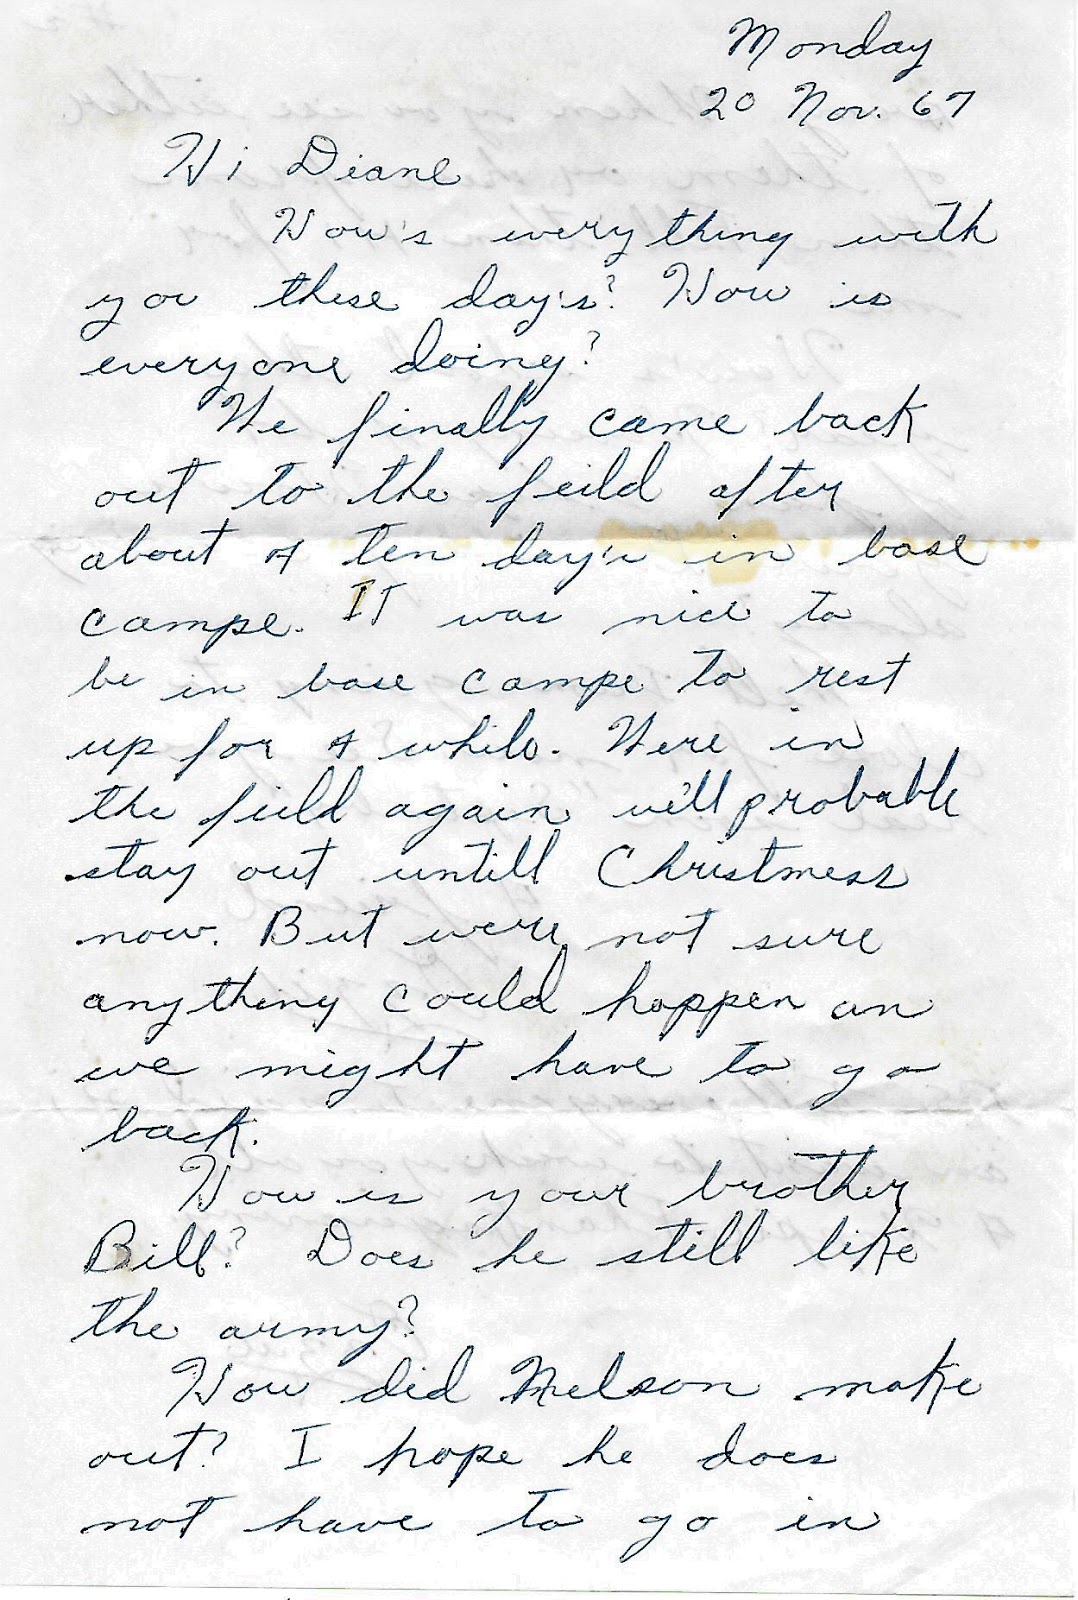 Monday
20 Nov. 67
Hi Diane
How's everything with
you these day's? How is
everyone doing?
We finally came back
out to the feild after
about a ten day's in base
campe. IT was nice to
be in base campe to rest
up for a while. Were in
the field again we'll probable
stay out untill Christmess
now. But were not sure
anything could happen an
we might have to go
back.
How is your brother
Bill? Does he still like
the army?
How did Nelson make
out? I hope he does
not have to go in